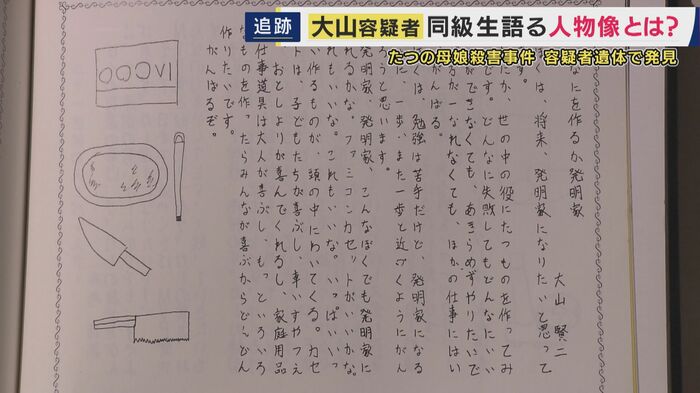 追跡
大山容疑者 同級生語る人物像とは?
たつの母娘殺害事件 容疑者遺体で発見
なにを作るか発明家
大山 賢二
くは、将来、発明家になりたいと思って
す。
たか、世の中の役にたつものを作ってみ
です。どんなに失敗してもどんなにいい
ができなくても、あきらめずやりたいで
方がーなれなくても、ほかの仕事にはい
がんばる。
くは、勉強は苦手だけど、発明家になる
に、一歩、また一歩と近づくようにがん
ろうと思います。
発明家、発明家、こんなぼくでも発明家に
れるかな。ファミコンカセットがいいかな。
もいいな。これもいいな。いっぱいいっ
い作るものが、頭の中にわいてくる。カセ
トは、子どもたちが喜ぶし、車いすやつえ
おとしよりが喜んでくれるし、家庭用品
仕事道具は大人が喜ぶし、もっといろいろ
なものを作ったらみんなが喜ぶからどんどん
作りたいです。
がんばるぞ。